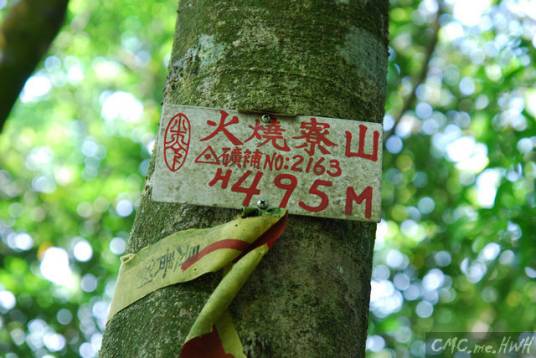 火燒寮山
礦補NO:2163
H495M
CMC.me.HWH